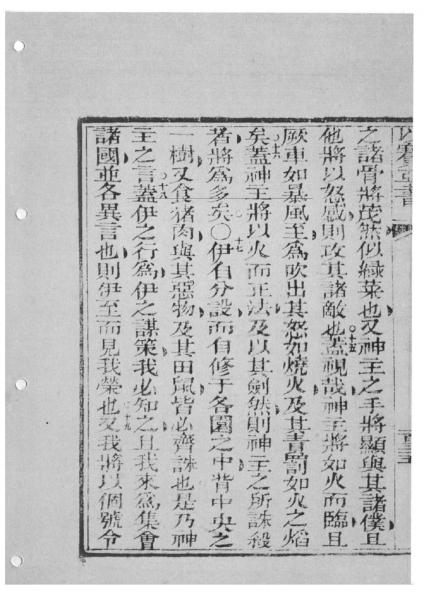 以賽亞書
之諸骨將茂然似綠菜也又神主之手將顯與其諸僕且
他將以怒感則攻其諸敵也〇十五蓋視哉神主將如火而臨且
厥車如暴風至為吹出其怒如燒火及其責罰如火之焰
矣〇十六蓋神主將以火而正法及以其劍然則神主之所誅殺
者將為多矣〇十七伊自分設而自修于各園之中背中央之
一樹又食猪肉與其惡物及其田鼠皆必齊誅也是乃神
主之言〇十八蓋伊之行為伊之謀策我必知之且我來為集會
諸國並各異言也則伊至而見我榮也〇十九又我將以個號令